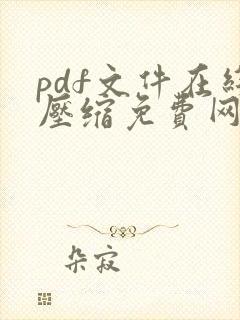 pdf文件在线
压缩免费网
朵寂